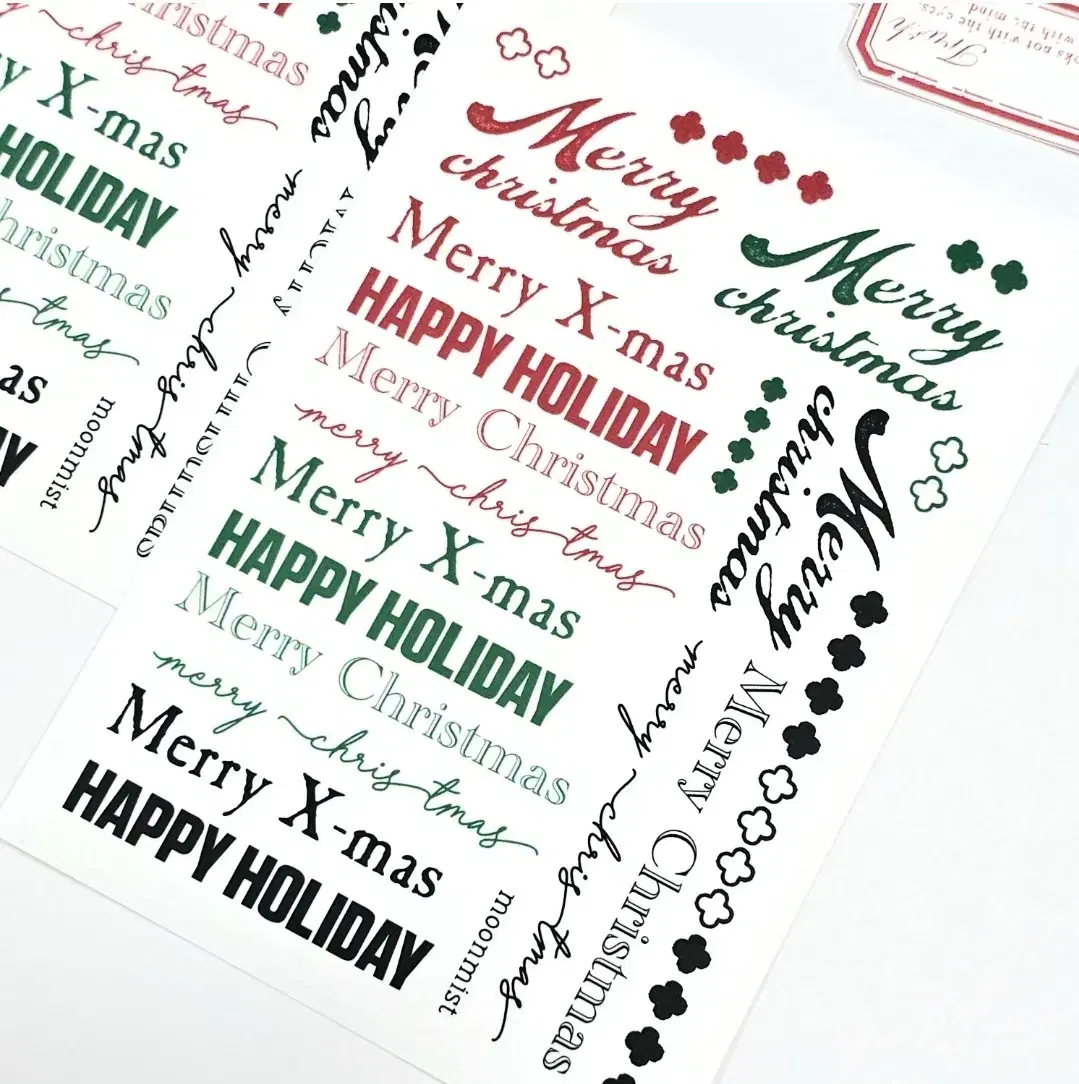 Christmas
chris tmas
y X-mas
HOLIDAY
hristmas
tmas
as
Y
moonmist
merry chris tmas
Merry
christmas
Merry X-mas
HAPPY HOLIDAY
Merry Christmas
merry chris tmas
Merry X-mas
HAPPY HOLIDAY
Merry Christmas
merry chris tmas
Merry X-mas
HAPPY HOLIDAY
moonmist
Merry
christmas
Merry
christmas
Merry Christmas
merry chris tmas
Truth
oks not with the eyes
with the mind